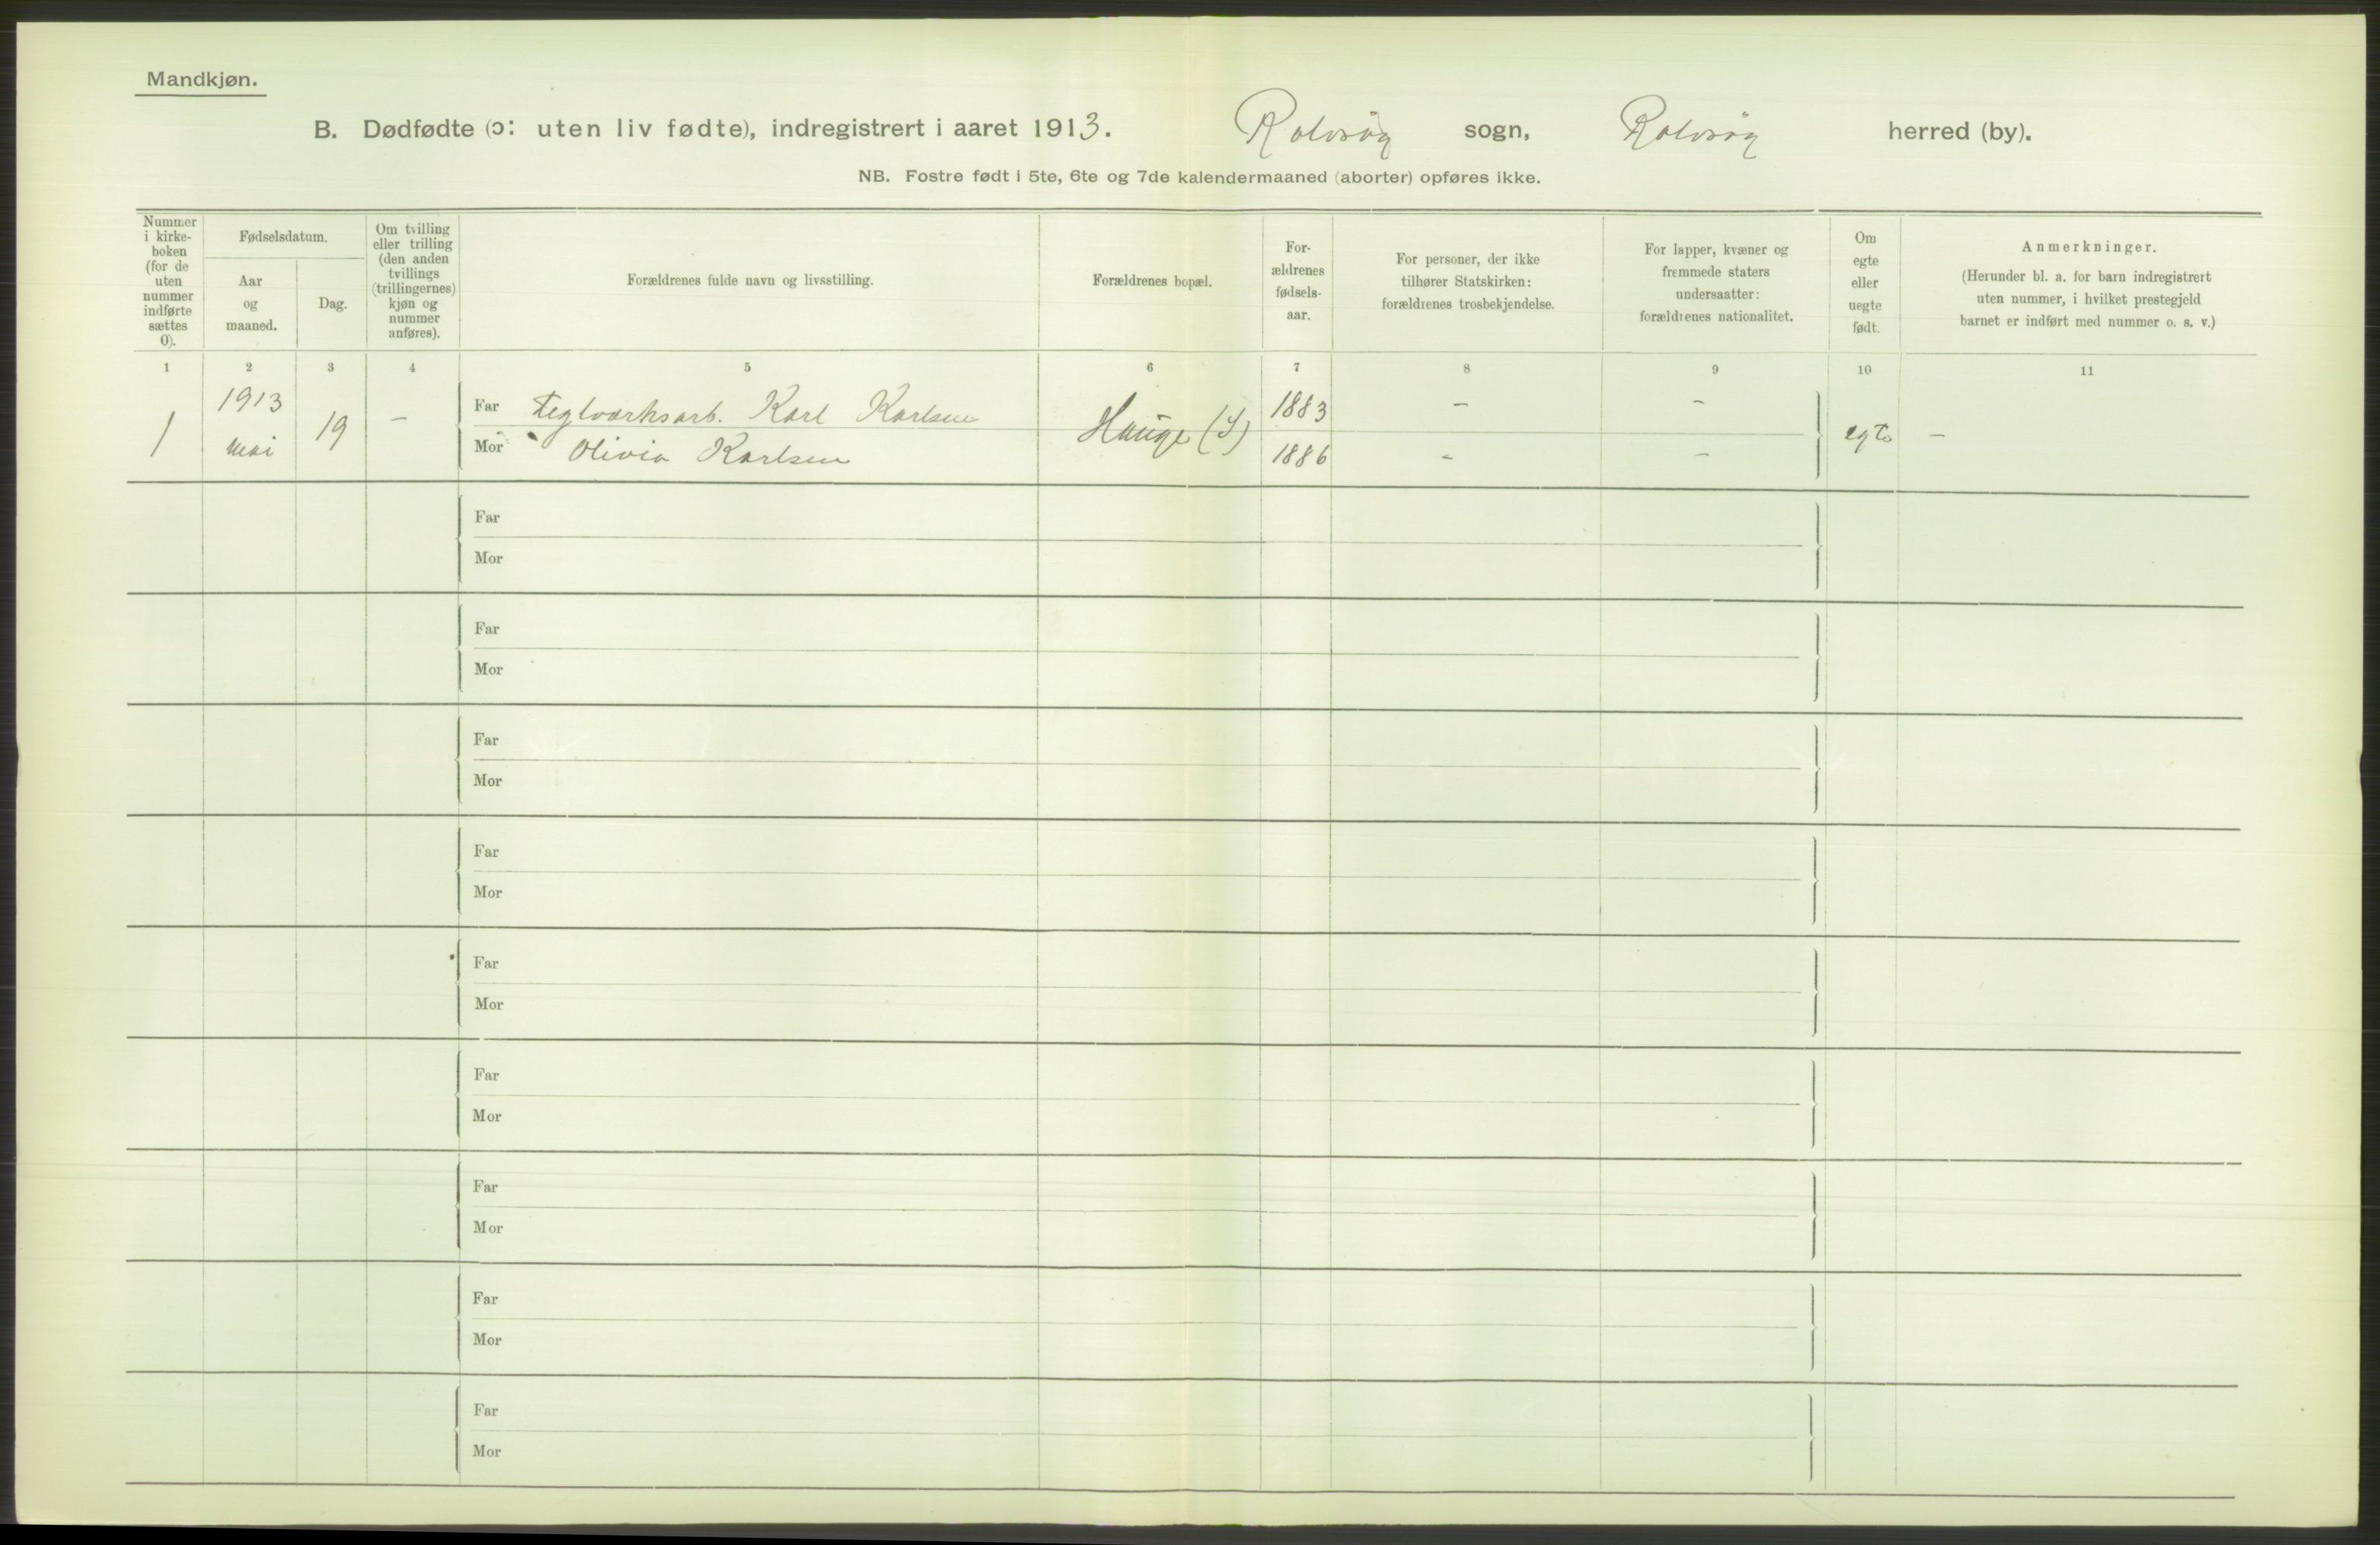 Mandkjøn.
B. Dødfødte (ɔ: uten liv fødte), indregistrert i aaret 1913. Rolvsøy sogn, Rolvsøy herred (by).
NB. Fostre født i 5te, 6te og 7de kalendermaaned (aborter) opføres ikke.
Nummer
i kirke-
boken
(for de
uten
nummer
indførte
sættes
0).
Fødselsdatum.
Aar
og
maaned.
Dag.
Om tvilling
eller trilling
(den anden
tvillings
(trillingernes)
kjøn og
nummer
anføres).
Forældrenes fulde navn og livsstilling.
Forældrenes bopæl.
For-
ældrenes
fødsels-
aar.
For personer, der ikke
tilhører Statskirken:
forældrenes trosbekjendelse.
For lapper, kvæner og
fremmede staters
undersaatter:
forældrenes nationalitet.
Om
egte
eller
uegte
født.
Anmerkninger.
(Herunder bl. a. for barn indregistrert
uten nummer, i hvilket prestegjeld
barnet er indført med nummer o. s. v.)
1 2 3 4 5 6 7 8 9 10 11
1 1913 mai 19 –
Far Teglværksarb. Karl Karlsen
Mor Olivia Karlsen
Hauge
1883 – –
1886 – –
egte –
Far
Mor
Far
Mor
Far
Mor
Far
Mor
Far
Mor
Far
Mor
Far
Mor
Far
Mor
Far
Mor